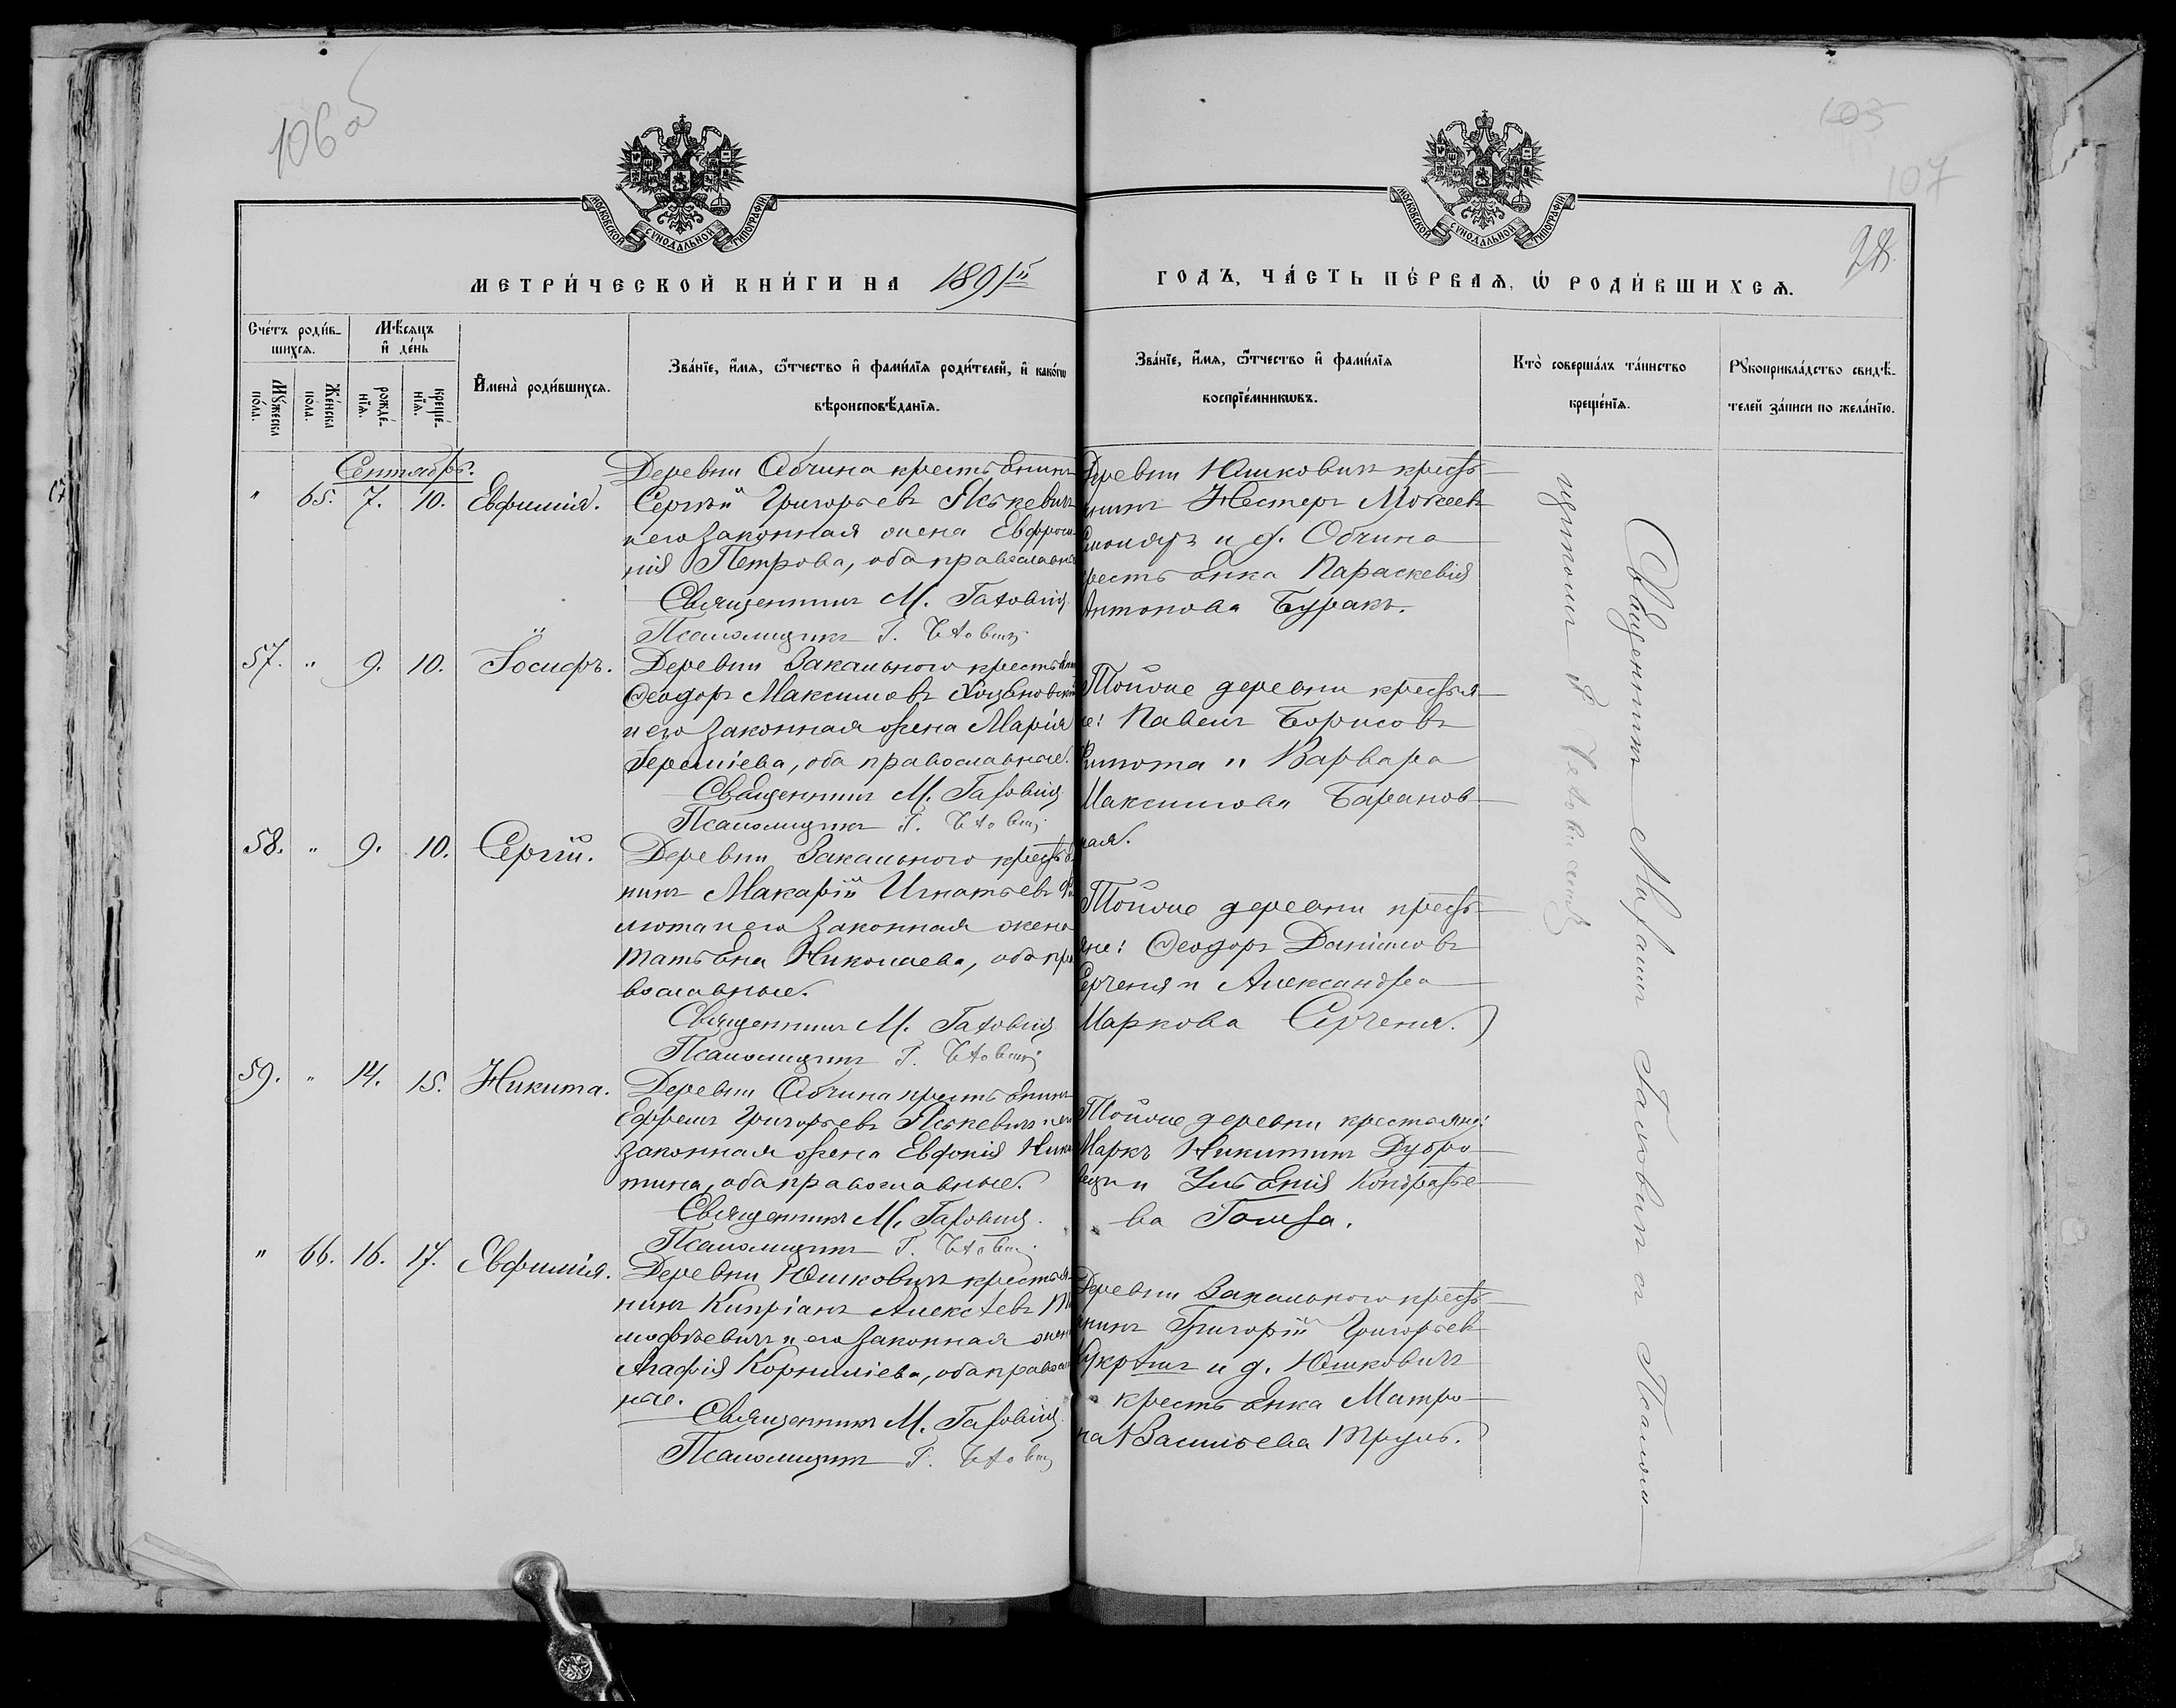 106об
103
107
28.
МОСКОВСКОЙ СѴНОДАЛЬНОЙ ТИПОГРАФІИ
МОСКОВСКОЙ СѴНОДАЛЬНОЙ ТИПОГРАФІИ
МЕТРИ́ЧЕСКОЙ КНИ́ГИ НА 1891й
ГОДЪ, ЧА́СТЬ ПЕ́РВАѦ, Ѡ҆ РОДИ́ВШИХСѦ.
Сче́тъ роди́в-
шихсѧ.
Мѣ́сѧцъ
и҆ де́нь
Мꙋ́жеска
по́ла.
Же́нска
по́ла.
рожде́-
нїѧ.
креще́-
нїѧ.
И҆мена̀ роди́вшихсѧ.
Зва́нїе, и҆́мѧ, ѻ҆́тчество и҆ фами́лїѧ роди́телей, и҆ како́гѡ
вѣроисповѣ́данїѧ.
Зва́нїе, и҆́мѧ, ѻ҆́тчество и҆ фами́лїѧ
воспрїе́мникѡвъ.
Кто̀ соверша́лъ та́инство
креще́нїѧ.
Рꙋкоприкла́дство свидѣ́-
телей за́писи по жела́нїю.
Сентябрь.
" 65. 7. 10. Евфимія.
Деревни Обчина крестьянинъ
Сергѣй Григорьевъ Яськевичъ
и его законная жена Евфроси-
нія Петрова, оба православные
Священникъ М. Гахович
Псаломщикъ
Деревни Юшковичъ кресть-
янинъ Нестеръ Мокеевъ
и д. Обчина
крестьянка Параскевія
Антонова Буракъ.
57. " 9. 10. Іосифъ.
Деревни Закального крестьянинъ
Ѳеодоръ Максимовъ
и его законная жена Марія
Іереміева, оба православные.
Священникъ М. Гахович
Псаломщикъ
Тойже деревни крестья-
не: Павелъ Борисовъ
и Варвара
Максимова Баранов-
ская.
58. " 9. 10. Сергій.
Деревни Закального крестья-
нинъ Макарій Игнатьевъ Фи-
лютаи его законная жена
Татьяна Николаева, оба пра-
вославные.
Священникъ М. Гахович
Псаломщикъ
Тойже деревни кресть-
яне: Ѳеодоръ Даніиловъ
Серченя и Александра
Маркова Серченя.
59. " 14. 15. Никита.
Деревни Обчина крестьянинъ
Ефремъ Григорьевъ Яськевичъ и его
законная жена Евдокія Ники-
тина, оба православные.
Священникъ М. Гахович
Псаломщикъ
Тойже деревни крестьяне:
Маркъ Никитинъ Дубро-
и Ульянія Кондратье-
ва
" 66. 16. 17. Евфимія.
Деревни Юшковичъ крестья-
нинъ Кипріанъ Алексѣевъ Ти-
мофѣевичъ и его законная жена
Агафія Корниліева, оба православ-
ные.
Священникъ М. Гахович
Псаломщикъ
Деревни Закального кресть-
янинъ Григорій Григорьевъ
и д. Юшковичъ
крестьянка Матро-
на Васильева Труль.
Священникъ Михаилъ Гаховичъ и Псалом-
щикомъ